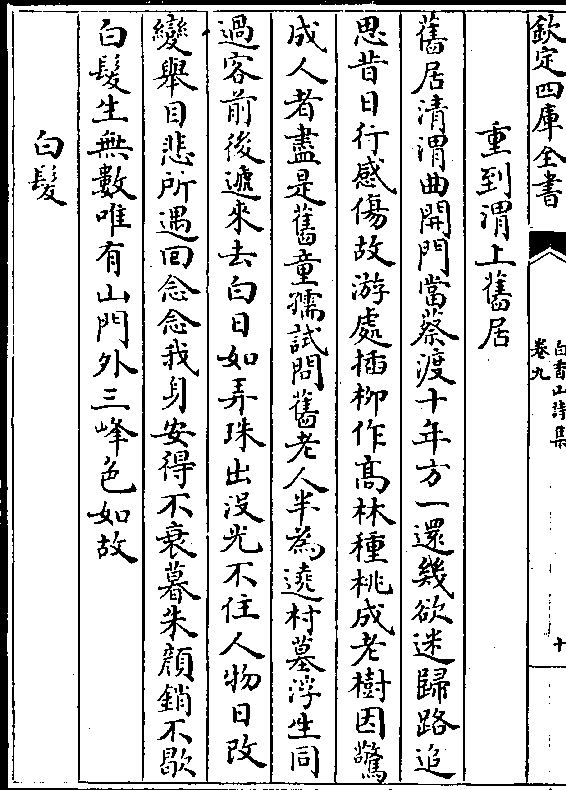 欽定四庫全書
白香山詩集
卷九
十
重到渭上舊居
舊居清渭曲開門當蔡渡十年方一還幾欲迷歸路追
思昔日行感傷故游處插柳作髙林種桃成老樹因驚
成人者盡是舊童孺試問舊老人半為遶村墓浮生同
過客前後遞來去白日如弄珠出没光不住人物日改
變舉目悲所遇回念念我身安得不衰暮朱顔銷不歇
白髮生無數唯有山門外三峰色如故
白髮